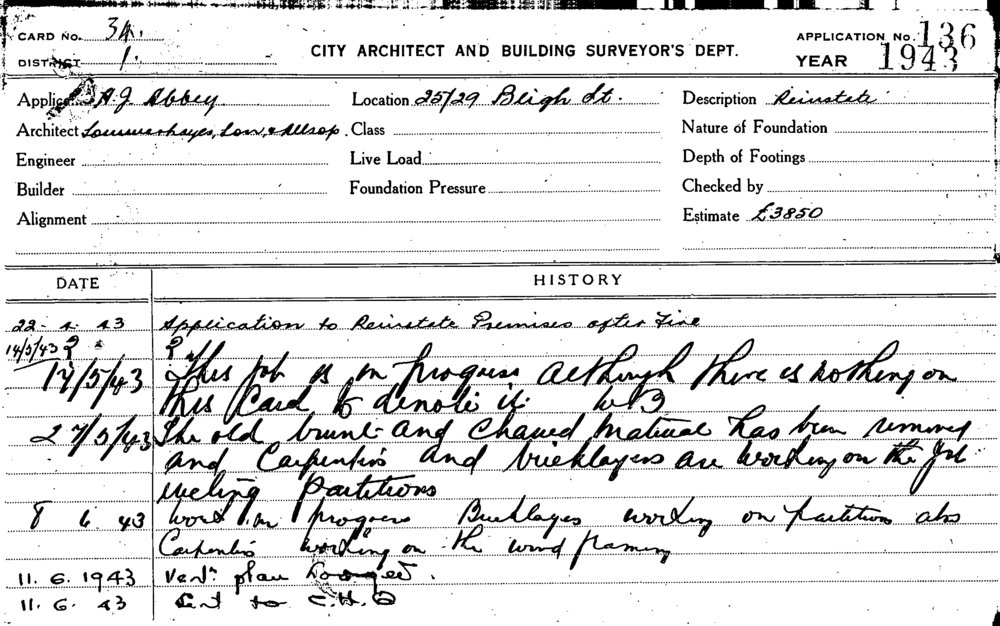 CARD No. 34.
DISTRICT 1.
CITY ARCHITECT AND BUILDING SURVEYOR'S DEPT.
APPLICATION No. 136
YEAR 1943
Applicant A.J. Abbey
Location 25/29 Bligh St.
Description Reinstate
Architect Son, & Allsop.
Class
Nature of Foundation
Engineer
Live Load
Depth of Footings
Builder
Foundation Pressure
Checked by
Alignment
Estimate £3850
DATE
HISTORY
22 - 4. 43 Application to Reinstate Premises after Fire
14/5/43 2
17/5/43 This job is in progress although there is nothing on
this Card to denote it
27/5/43 The old burnt and charred material has been removed
and Carpenters and bricklayers are working on the Job
erecting partitions
8 6 43 Work in progress Bricklayers working on partitions also
Carpenters working on the wind framing
11. 6. 1943 Vent. plan Lodged.
11. 6. 43 Sent to C.H.O